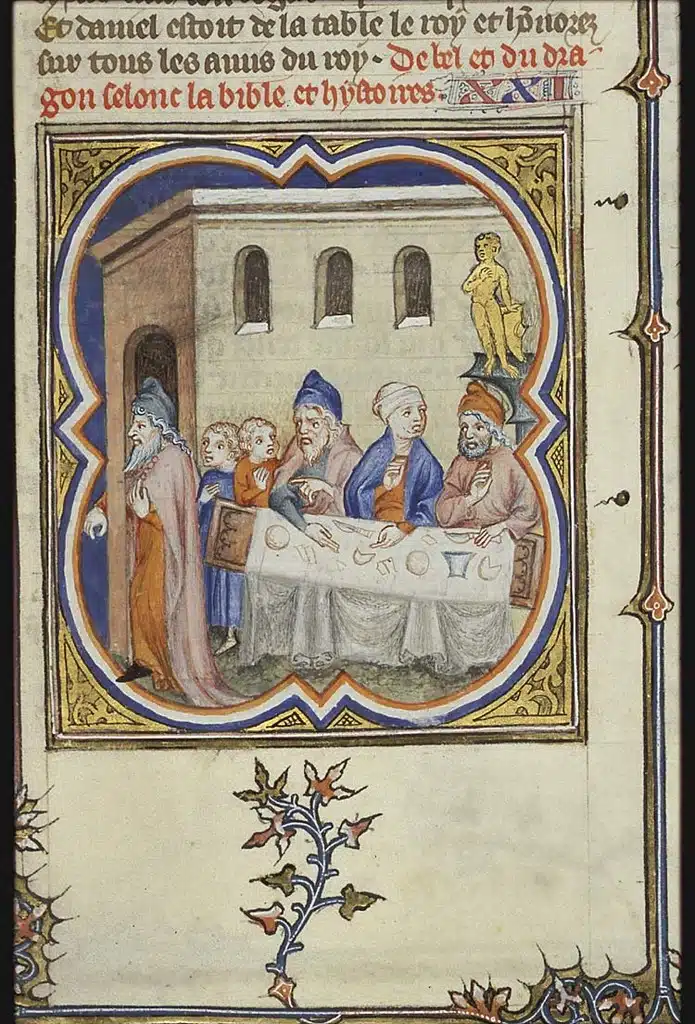 Et daniel estoit de la table le roy et hõnorez
sur tous les amis du roy. De bel et du dra
gon selonc la bible et hystoires. XXI